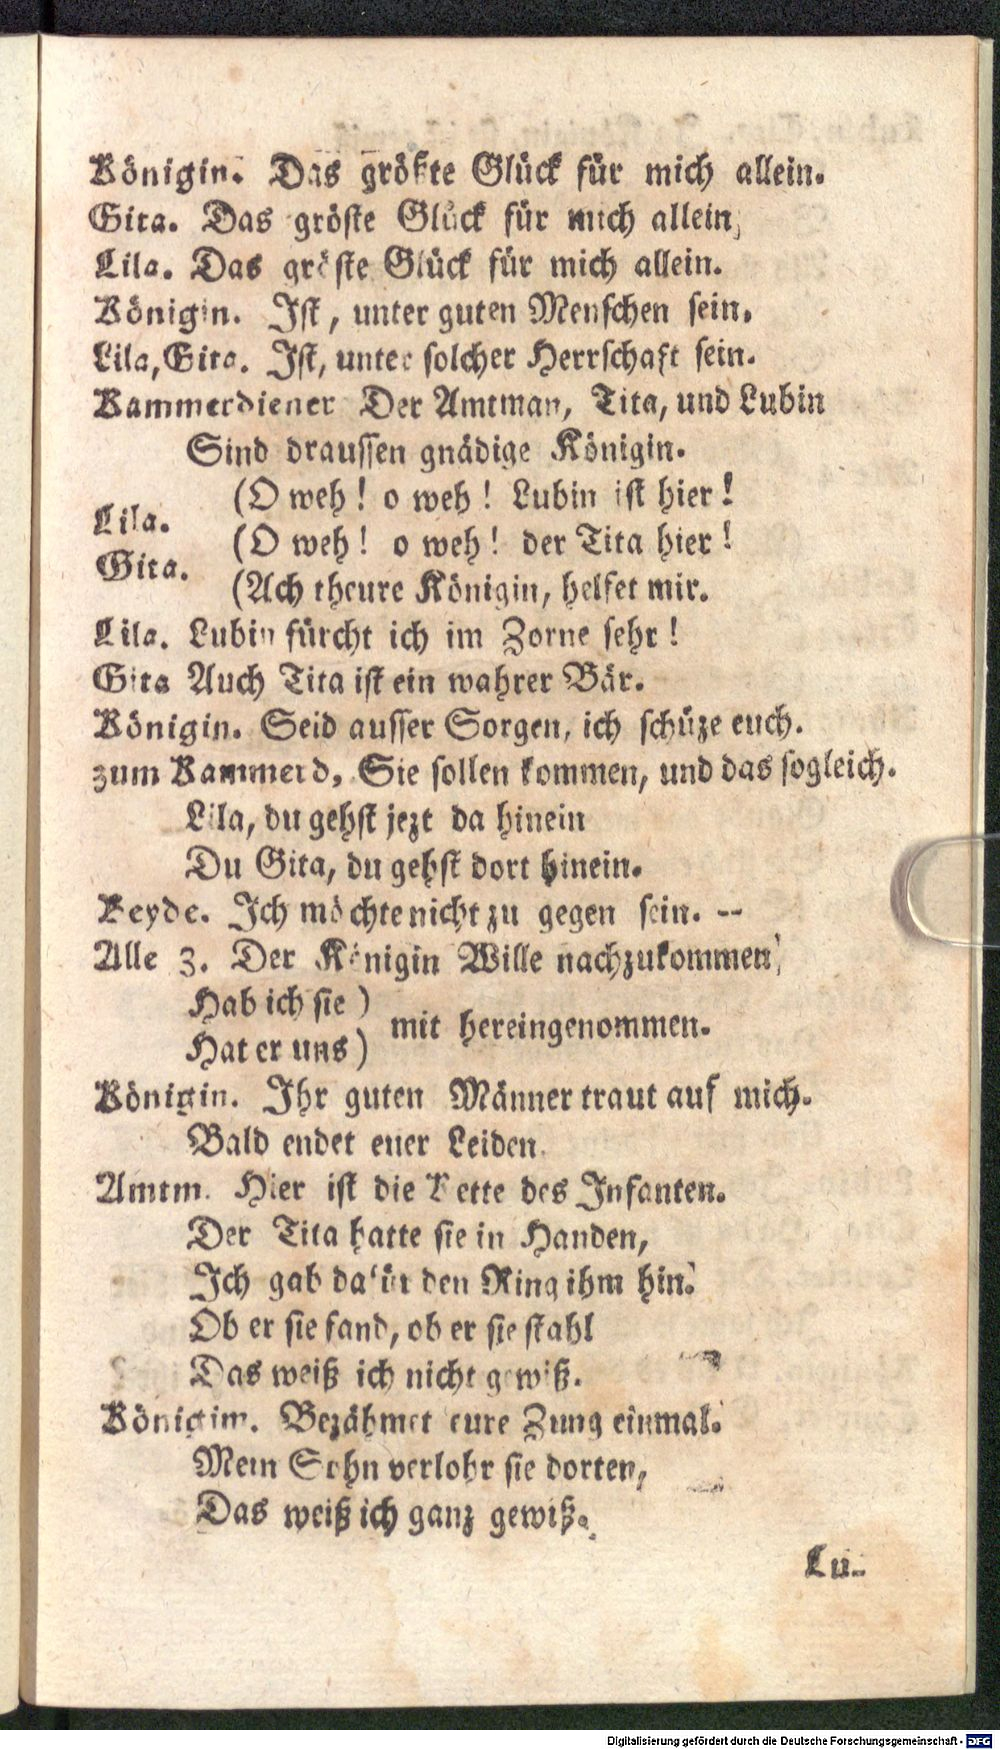 Königin. Das größte Glück für mich allein.
Gita. Das gröste Glück für mich allein,
Lila. Das gröste Glück für mich allein.
Königin. Ist, unter guten Menschen sein.
Lila, Gita. Ist, unter solcher Herrschaft sein.
Kammerdiener Der Amtman, Tita, und Lubin
Sind draussen gnädige Königin.
(O weh! o weh! Lubin ist hier!
Lila.
(O weh! o weh! der Tita hier!
Gita.
(Ach theure Königin, helfet mir.
Lila. Lubin fürcht ich im Zorne sehr!
Gita Auch Tita ist ein wahrer Bär.
Königin. Seid ausser Sorgen, ich schüze euch.
zum Kammerd, Sie sollen kommen, und das sogleich.
Lila, du gehst jezt da hinein
Du Gita, du gehst dort hinein.
Beyde. Ich möchte nicht zu gegen sein. --
Alle 3. Der Königin Wille nachzukommen,
Hab ich sie )
mit hereingenommen.
Hat er uns)
Königin. Ihr guten Männer traut auf mich.
Bald endet euer Leiden.
Amtm. Hier ist die Kette des Infanten.
Der Tita hatte sie in Handen,
Ich gab dafür den Ring ihm hin.
Ob er sie fand, ob er sie stahl
Das weiß ich nicht gewiß.
Königim. Bezähmet eure Zung einmal.
Mein Sohn verlohr sie dorten,
Das weiß ich ganz gewiß.
Lu-
Digitalisierung gefördert durch die Deutsche Forschungsgemeinschaft - DFG